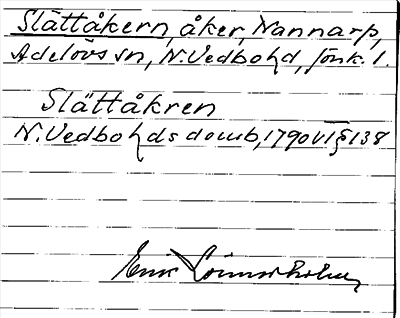 Slättåkern, åker, Nannarp,
Adelövs sn, N. Vedbo hd, Jönk. l.
Slättåkren
N. Vedbo hds domb, 1790 VT § 138
Erik